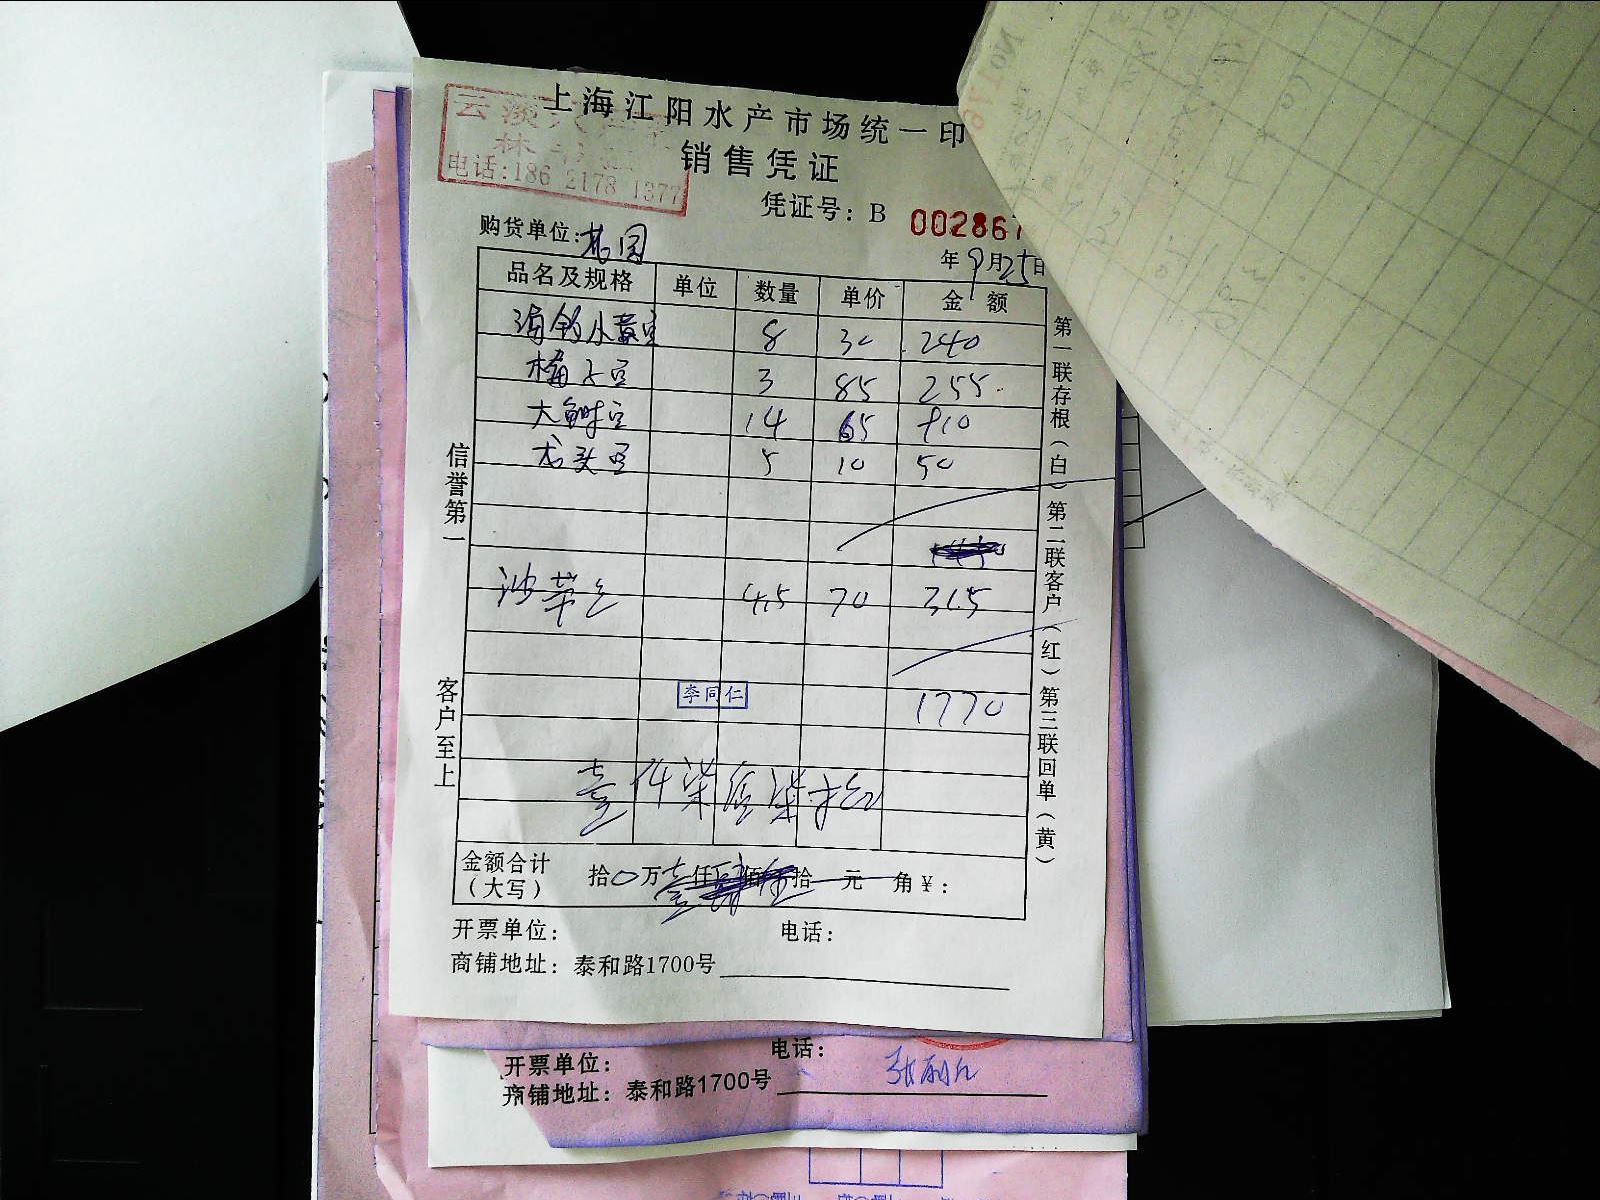 上海江阳水产市场统一印
销售凭证
电话:186 2178 1377
凭证号: B 00286
购货单位:
年9月25日
品名及规格 单位 数量 单价 金额
8 30 240
梅子 3 85 255
大 14 65 910
龙头 5 10 50
4.5 70 315
李同仁
1770
壹仟柒佰柒拾
金额合计
(大写)
拾0万壹仟佰拾元角¥:
开票单位: 电话:
商铺地址: 泰和路1700号
信誉第一
客户至上
第一联存根(白)第二联客户(红)第三联回单(黄)
开票单位: 电话:
商铺地址: 泰和路1700号